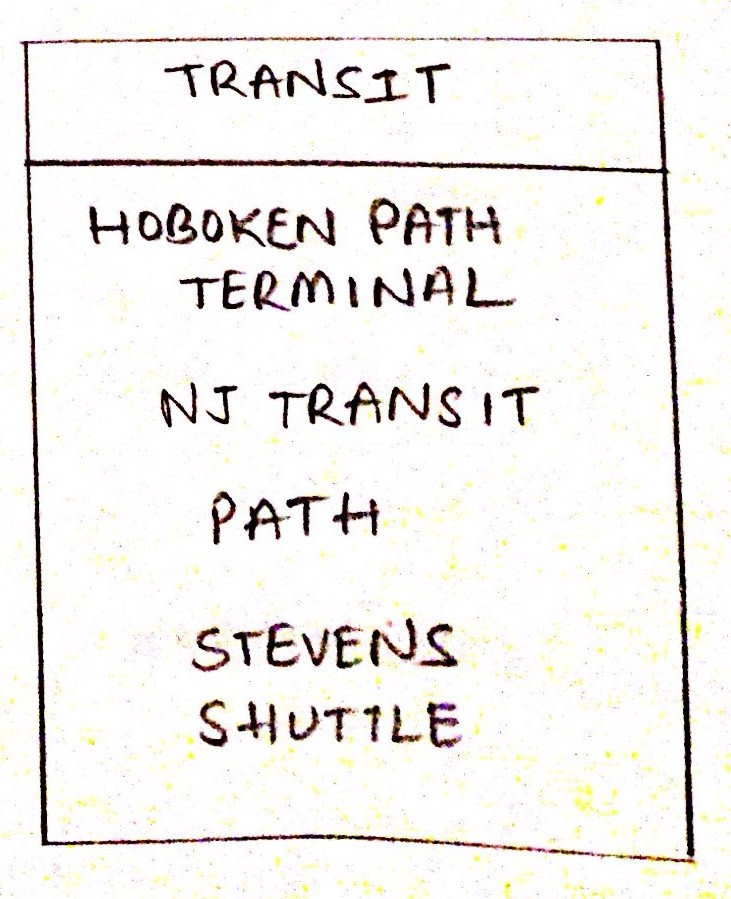 TRANSIT
HOBOKEN PATH
TERMINAL
NJ TRANSIT
PATH
STEVENS
SHUTTLE